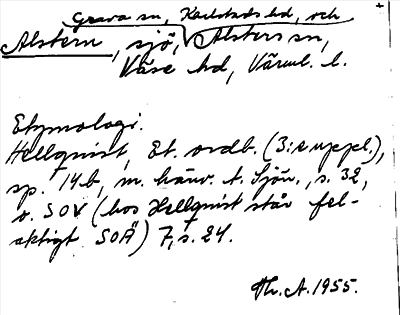 Grava sn, Karlstads hd, och
Alstern, sjö, Alsters sn,
Väse hd, Värml. l.
Etymologi.
Hellquist, Et. ordb. (3:e uppl.),
sp. 14b, m. hänv. t. Sjön., s. 32,
o. SOV (hos Hellquist står fel-
aktigt SOÄ) 7, s. 24.
Th. A. 1955.